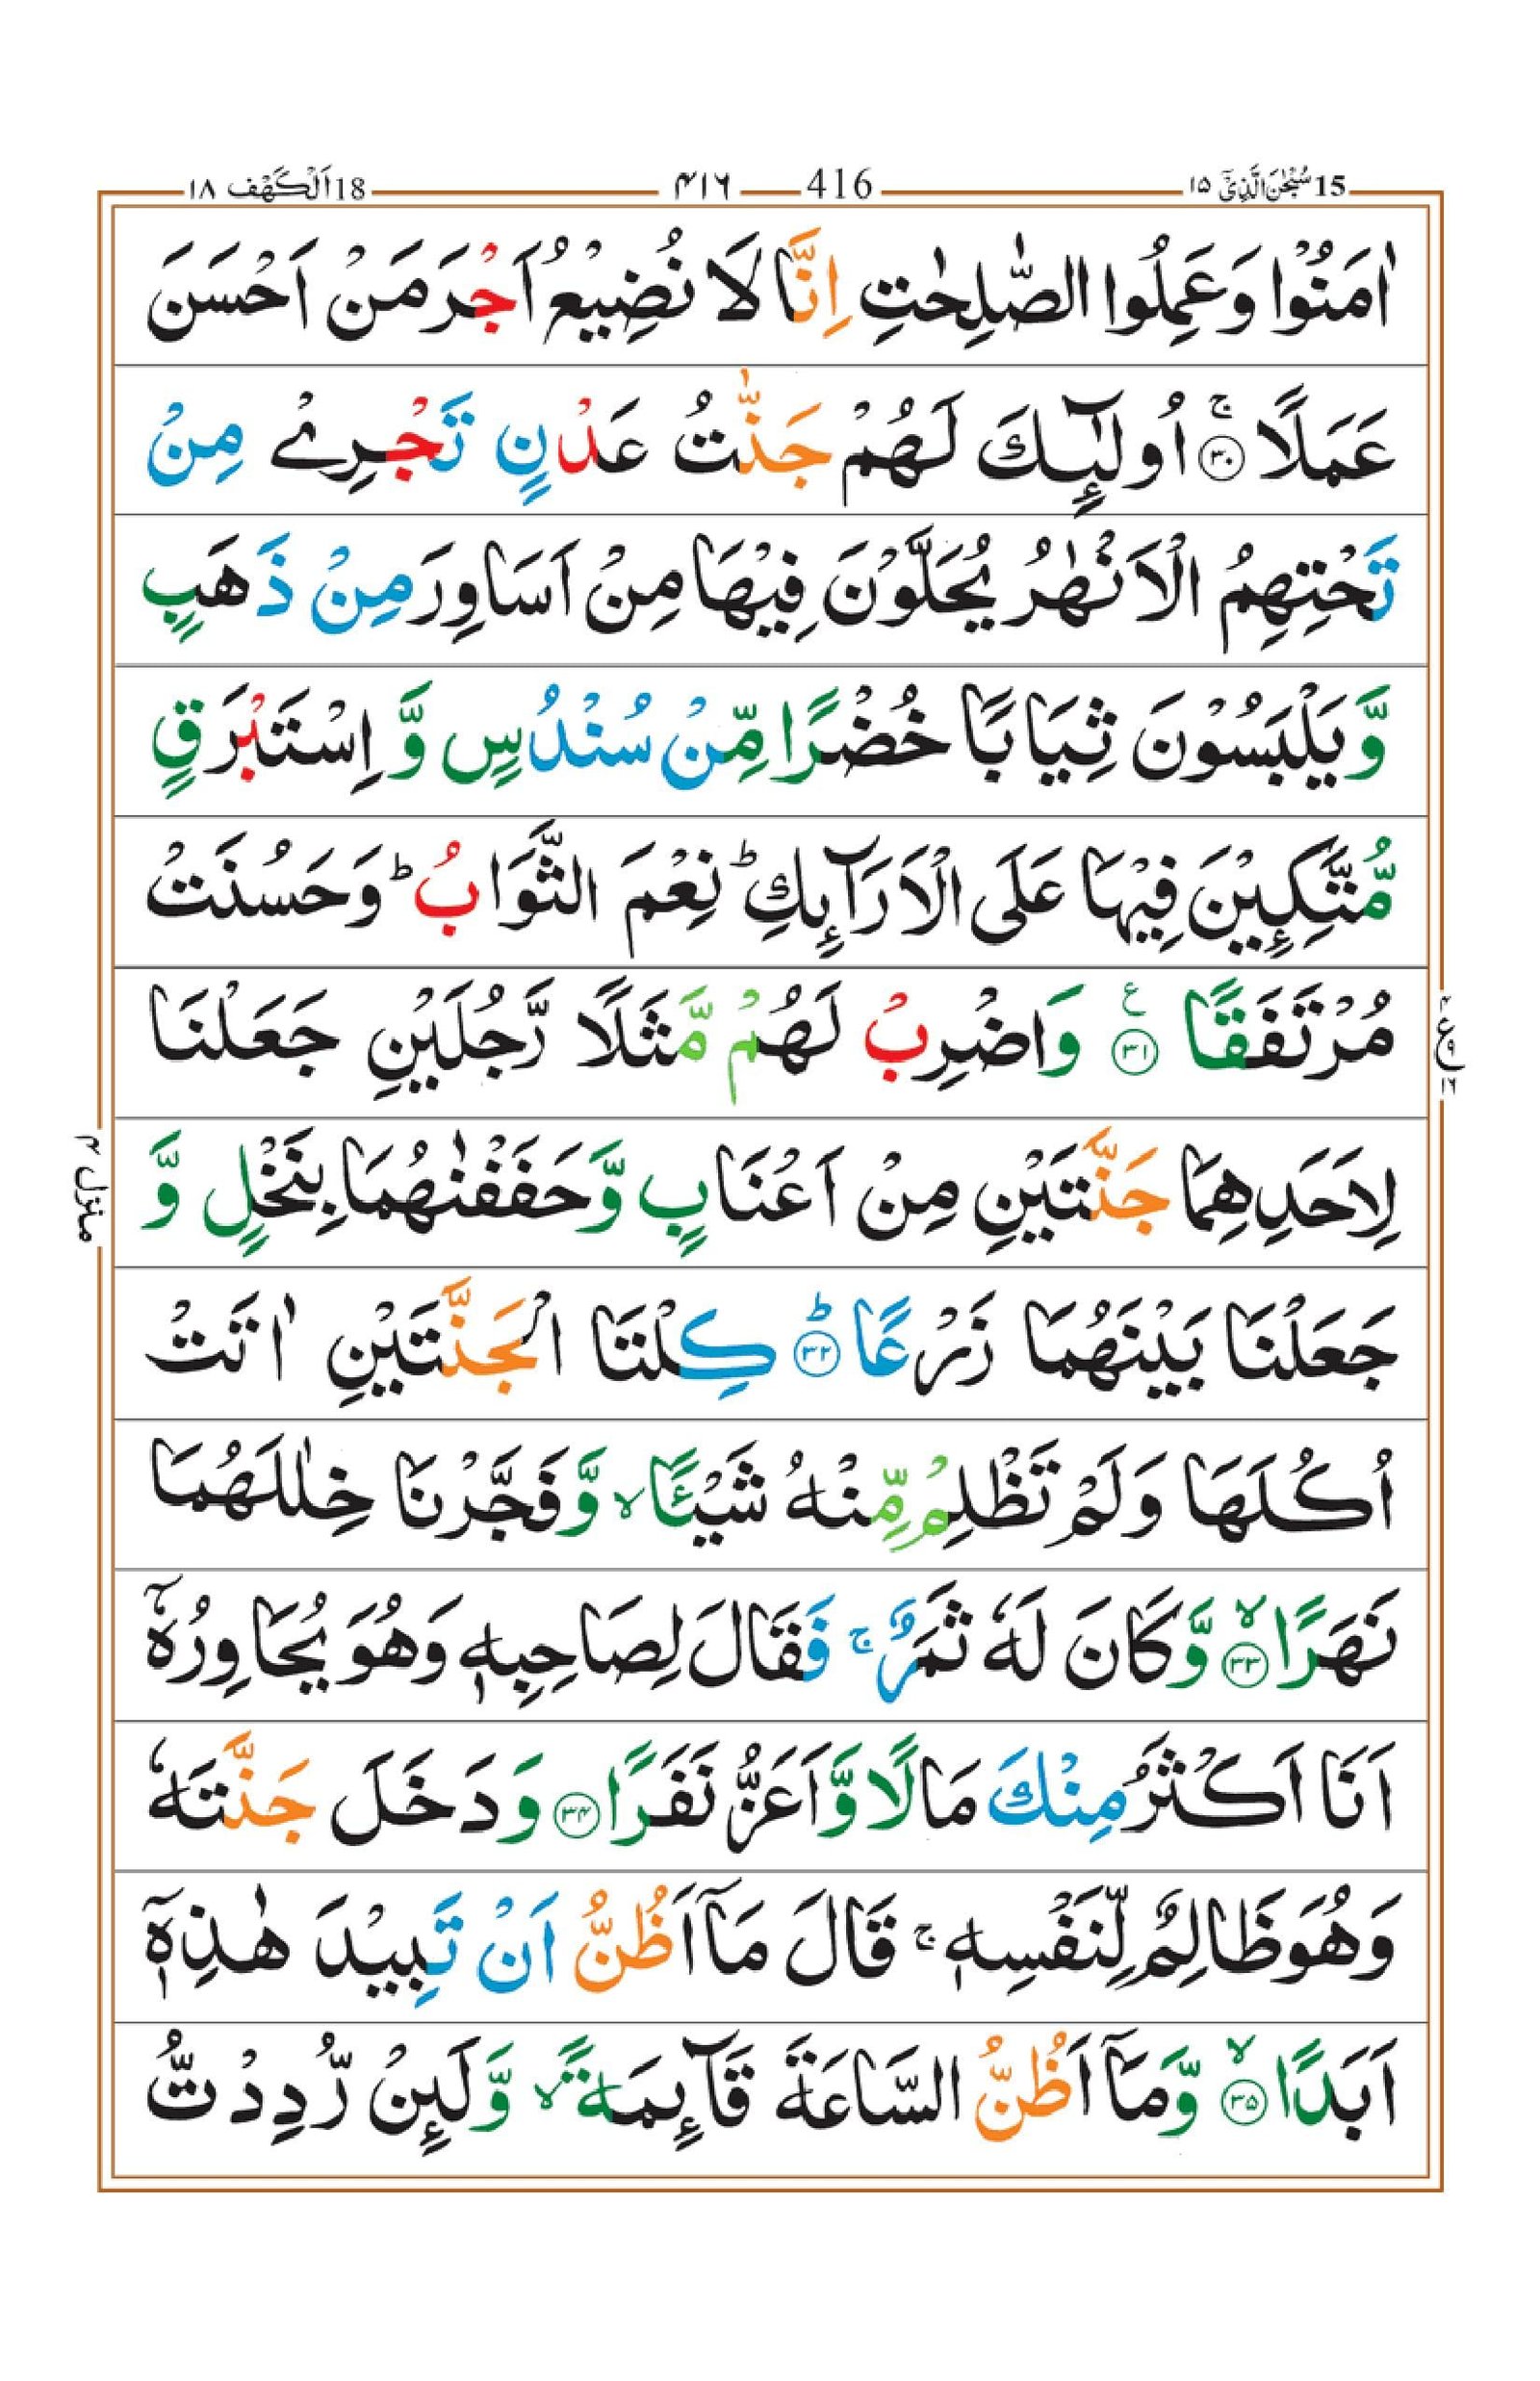 15 سُبْحٰنَ الَّذِيْٓ ١٥
416 ۴۱۶
18 اَلْكَهْف ١٨
اٰمَنُوْا وَعَمِلُوا الصّٰلِحٰتِ اِنَّا لَا نُضِيْعُ اَجْرَ مَنْ اَحْسَنَ
عَمَلًا ۚ ﴿۳۰﴾ اُولٰٓئِكَ لَهُمْ جَنّٰتُ عَدْنٍ تَجْرِيْ مِنْ
تَحْتِهِمُ الْاَنْهٰرُ يُحَلَّوْنَ فِيْهَا مِنْ اَسَاوِرَ مِنْ ذَهَبٍ
وَّيَلْبَسُوْنَ ثِيَابًا خُضْرًا مِّنْ سُنْدُسٍ وَّ اِسْتَبْرَقٍ
مُّتَّكِـِٕيْنَ فِيْهَا عَلَى الْاَرَآئِكِ ؕ نِعْمَ الثَّوَابُ ؕ وَحَسُنَتْ
مُرْتَفَقًا ﴿۳۱﴾ ع وَاضْرِبْ لَهُمْ مَّثَلًا رَّجُلَيْنِ جَعَلْنَا
لِاَحَدِهِمَا جَنَّتَيْنِ مِنْ اَعْنَابٍ وَّحَفَفْنٰهُمَا بِنَخْلٍ وَّ
جَعَلْنَا بَيْنَهُمَا زَرْعًا ؕ ﴿۳۲﴾ كِلْتَا الْجَنَّتَيْنِ اٰتَتْ
اُكُلَهَا وَلَمْ تَظْلِمْ مِّنْهُ شَيْـًٔا ۙ وَّفَجَّرْنَا خِلٰلَهُمَا
نَهَرًا ۙ ﴿۳۳﴾ وَّكَانَ لَهٗ ثَمَرٌ ۚ فَقَالَ لِصَاحِبِهٖ وَهُوَ يُحَاوِرُهٗٓ
اَنَا اَكْثَرُ مِنْكَ مَالًا وَّاَعَزُّ نَفَرًا ﴿۳۴﴾ وَدَخَلَ جَنَّتَهٗ
وَهُوَ ظَالِمٌ لِّنَفْسِهٖ ۚ قَالَ مَآ اَظُنُّ اَنْ تَبِيْدَ هٰذِهٖٓ
اَبَدًا ۙ ﴿۳۵﴾ وَّمَآ اَظُنُّ السَّاعَةَ قَآئِمَةً ۙ وَّلَئِنْ رُّدِدْتُّ
۴
ع ۹
۱۶
منزل ۴